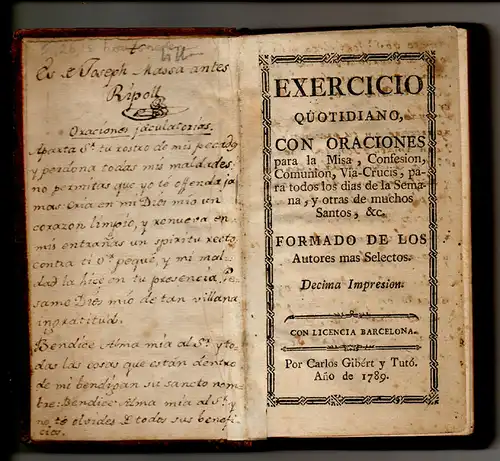 Es de Joseph Massa antes
Ripoll
Oraciones jaculatorias.
Aparta Sr. tu rostro de mis pecados
y perdona todas mis maldades,
no permitas que yo te ofenda ja
mas: Cria en mi Dios mio un
corazon limpio, y renueva en
mis entrañas un spiritu recto
contra ti Sr. pequé, y mi mal-
dad la hice en tu presencia, Pe-
same Dios mio de tan villana
ingratitud.
Bendice Alma mia al Sr. y to-
das las cosas que están dentro
de mi bendigan su sancto nom-
bre: Bendice Alma mia al Sr. y
no te olvides de todos sus benefi-
cios.
EXERCICIO
QÜOTIDIANO,
CON ORACIONES
para la Misa, Confesion,
Comunion, Via-Crucis, pa-
ra todos los dias de la Sema-
na, y otras de muchos
Santos, &c.
FORMADO DE LOS
Autores mas Selectos.
Decima Impresion.
CON LICENCIA BARCELONA.
Por Carlos Gibért y Tutó.
Año de 1789.